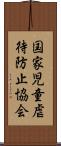 国家児童虐
待防止協会